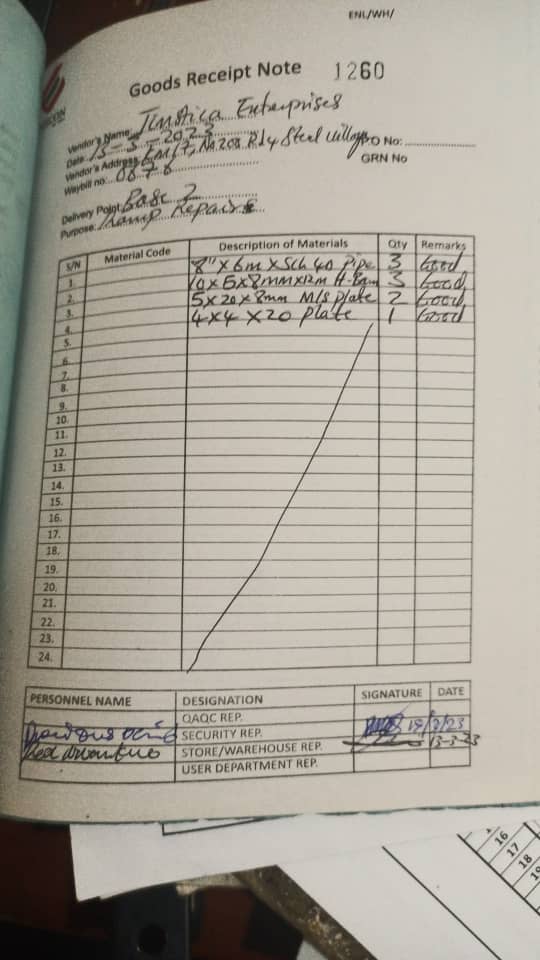 ENL/WH/
Goods Receipt Note 1260
Vendor's Name: Enterprises
Date: 13-3-2023
Vendor's Address Steel Village P.O No:
Waybill no: 0878 GRN No
Delivery Point: Base 2
Purpose: Repairs
S/N Material Code Description of Materials Qty Remarks
1. 8" x 6m x Sch 40 Pipe 3 Good
2. 10 x 5 x 8mm x 12m H-Beam 3 Good
3. 5 x 20 x 8mm M/S Plate 2 Good
4. 4 x 4 x 20 Plate 1 Good
5.
6.
7.
8.
9.
10.
11.
12.
13.
14.
15.
16.
17.
18.
19.
20.
21.
22.
23.
24.
PERSONNEL NAME DESIGNATION SIGNATURE DATE
QAQC REP.
SECURITY REP. /3/23
STORE/WAREHOUSE REP. 13-3-23
USER DEPARTMENT REP.
16
17
18